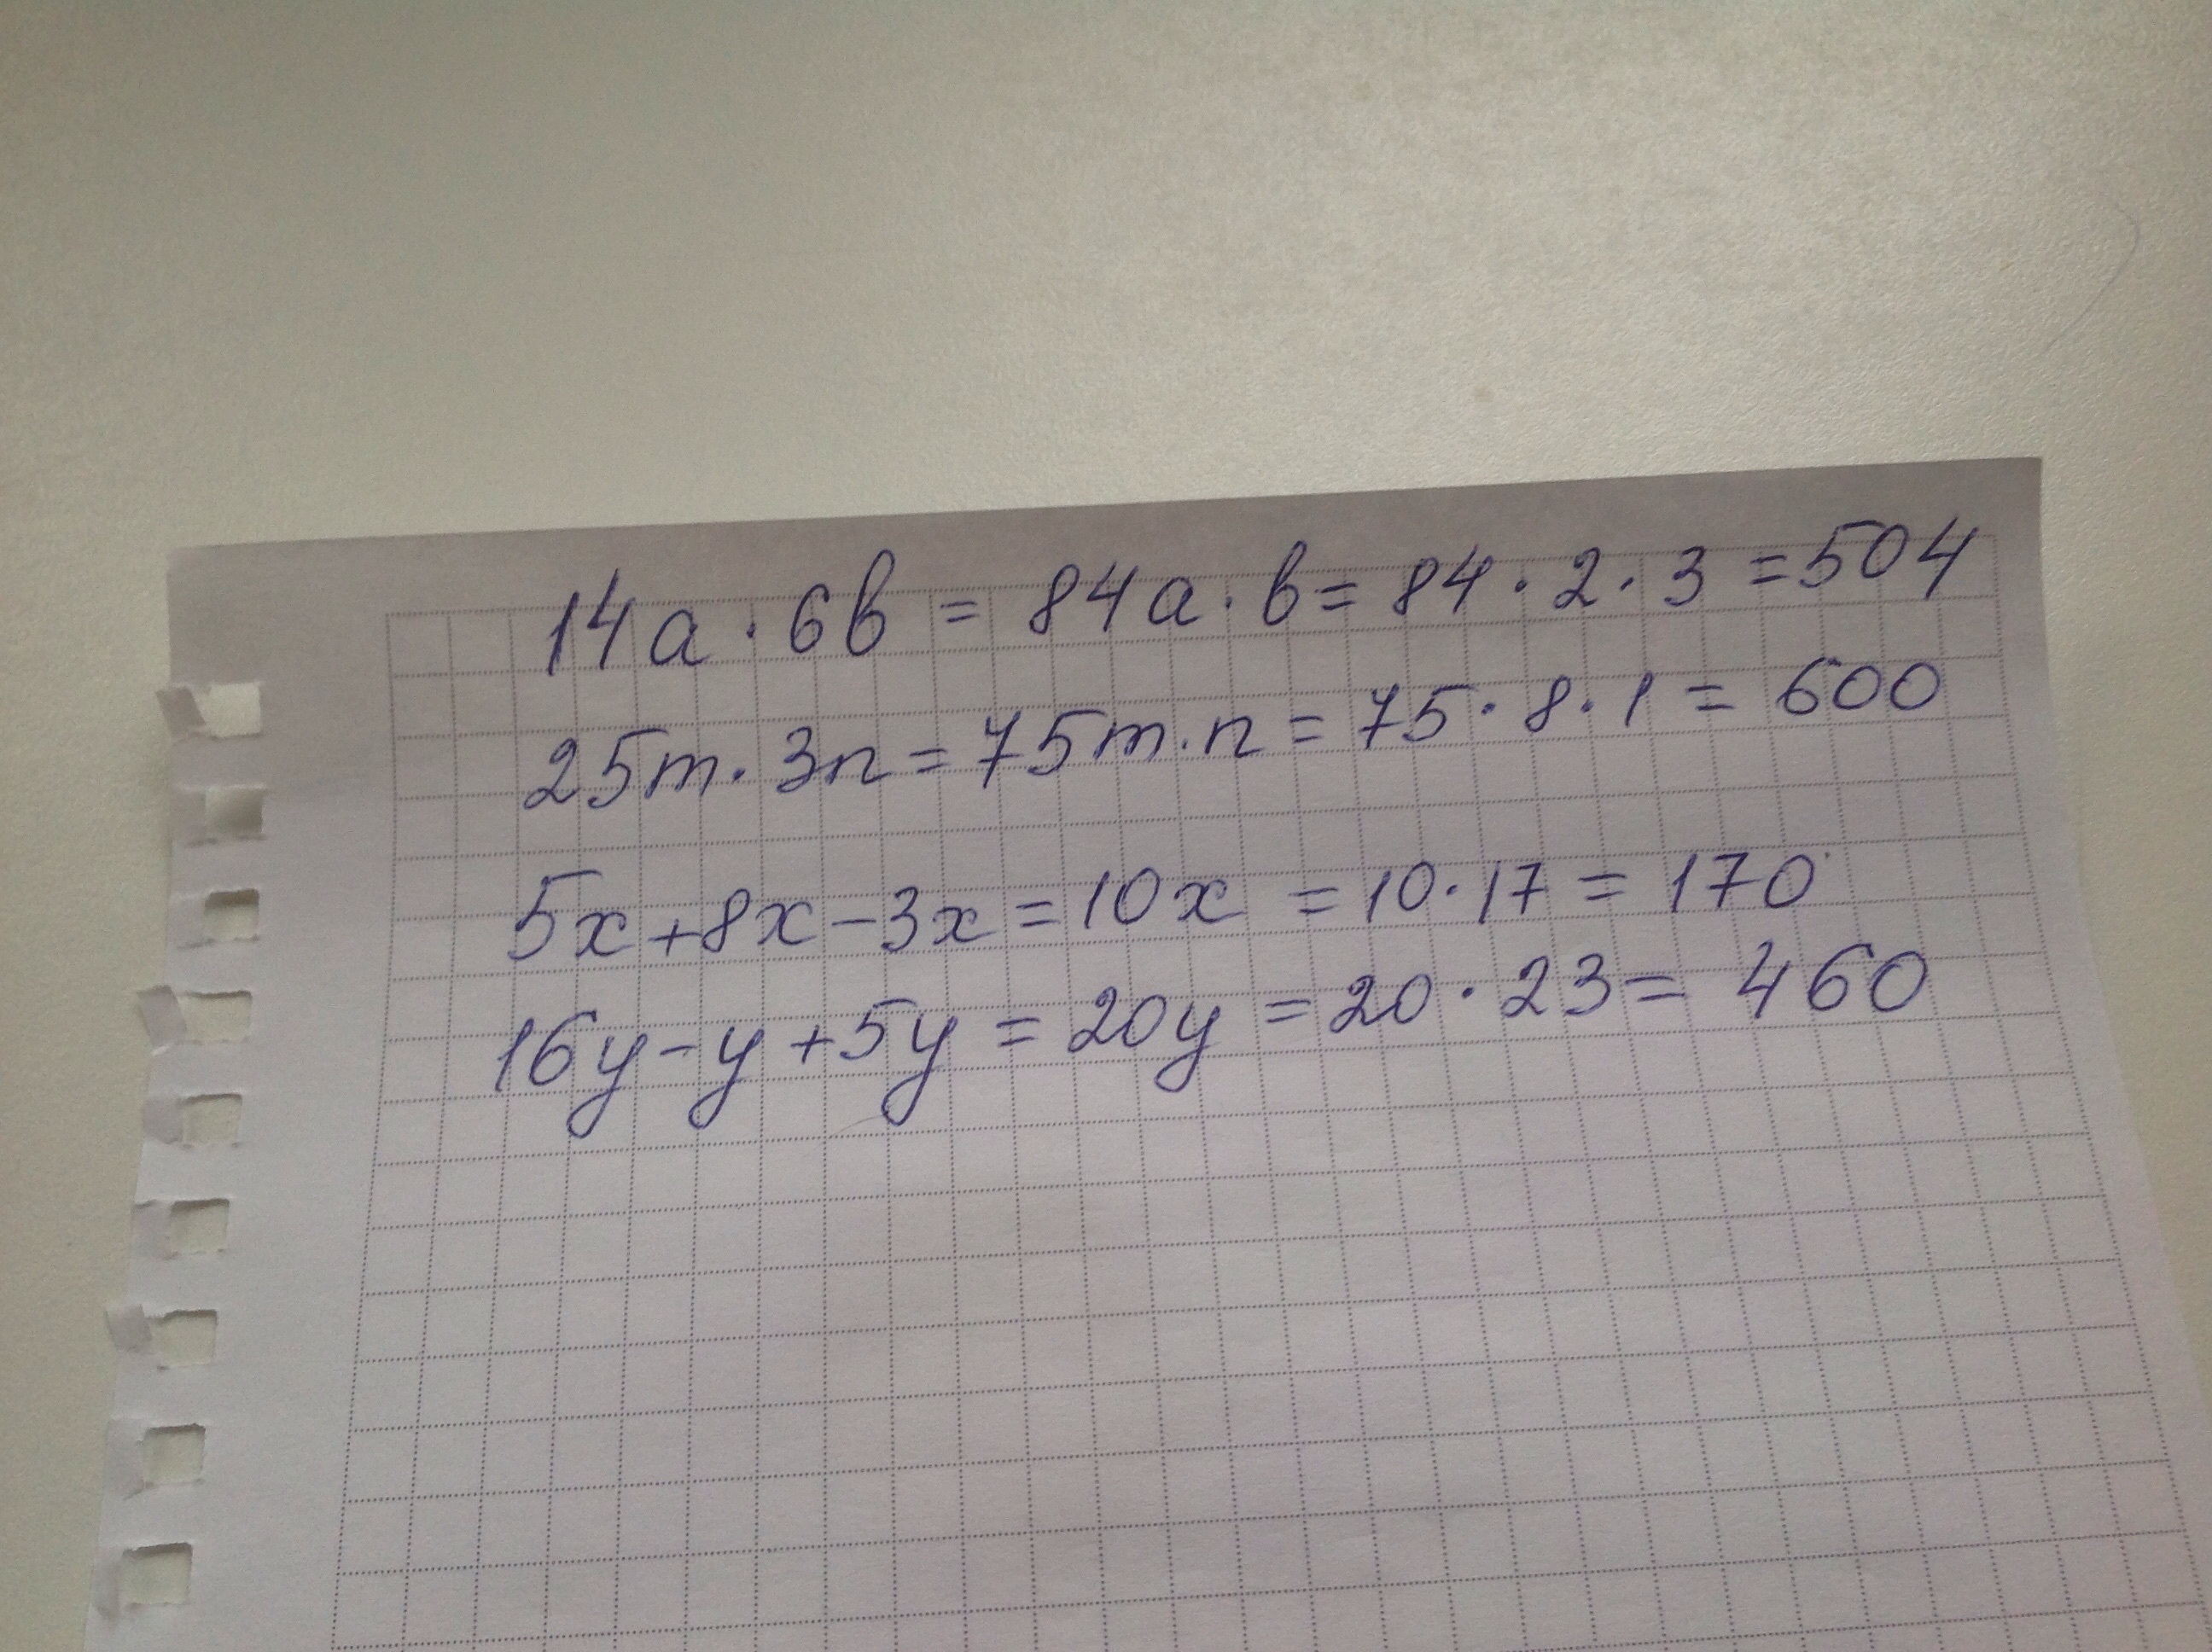 14a · 6b = 84a · b = 84 · 2 · 3 = 504
25m · 3n = 75m · n = 75 · 8 · 1 = 600
5x + 8x - 3x = 10x = 10 · 17 = 170
16y - y + 5y = 20y = 20 · 23 = 460